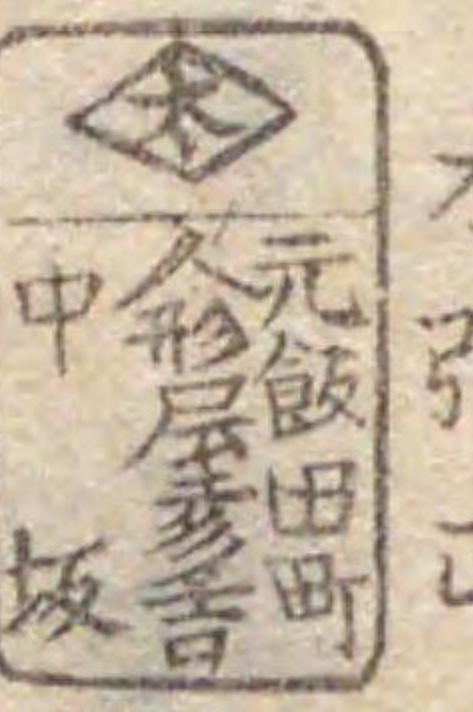 元飯田町
人形屋彦吉
中坂